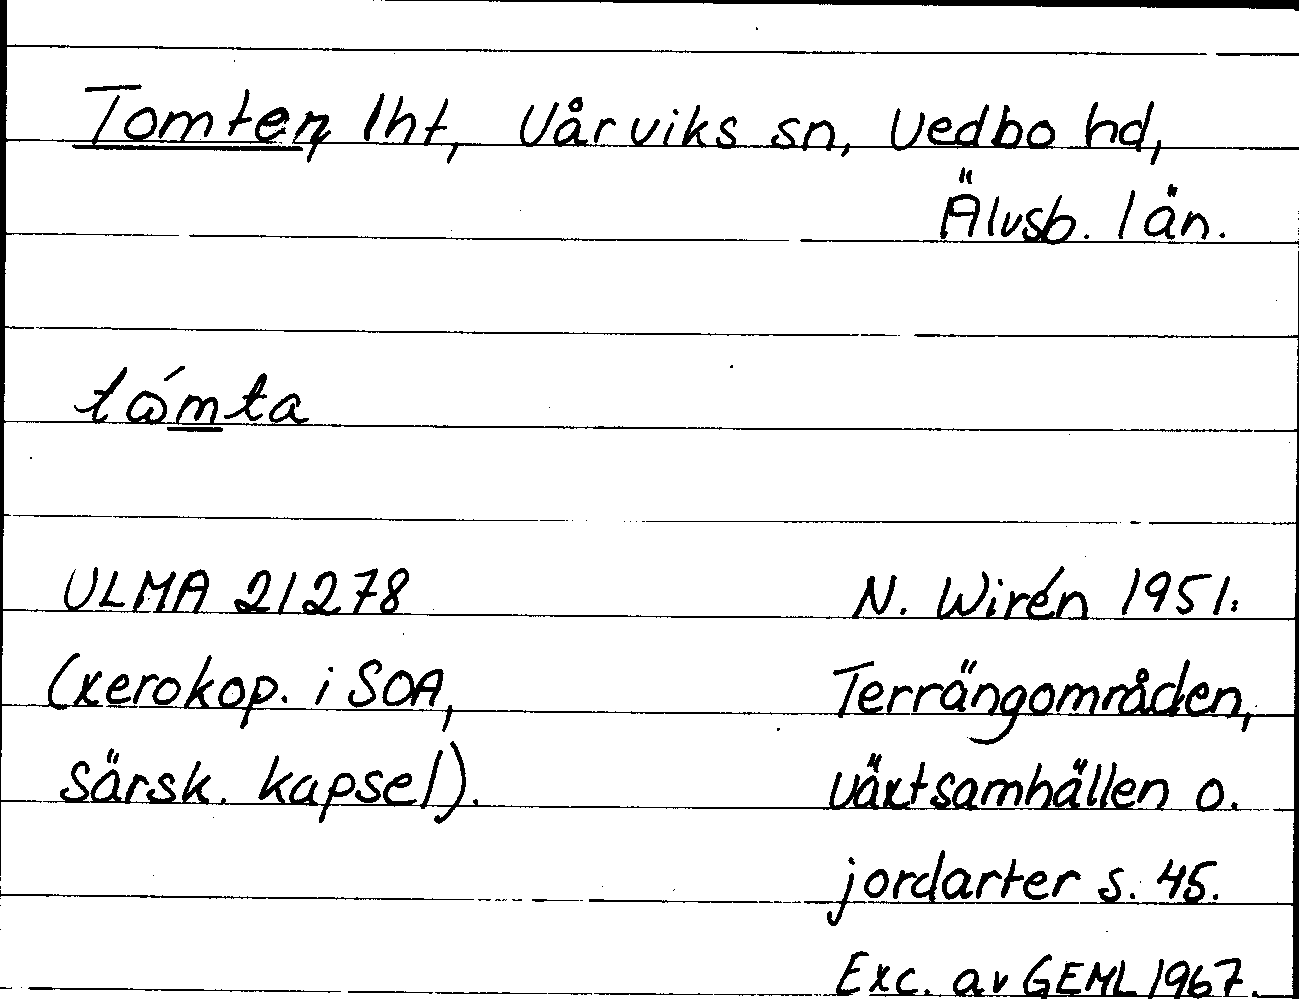 Tomten, lht, Vårviks sn, Vedbo hd,
Älvsb. län.
tǻmta
ULMA 21278
(xerokop. i SOA,
särsk. kapsel).
N. Wirén 1951:
Terrängområden,
växtsamhällen o.
jordarter s. 45.
Exc. av GEML 1967.